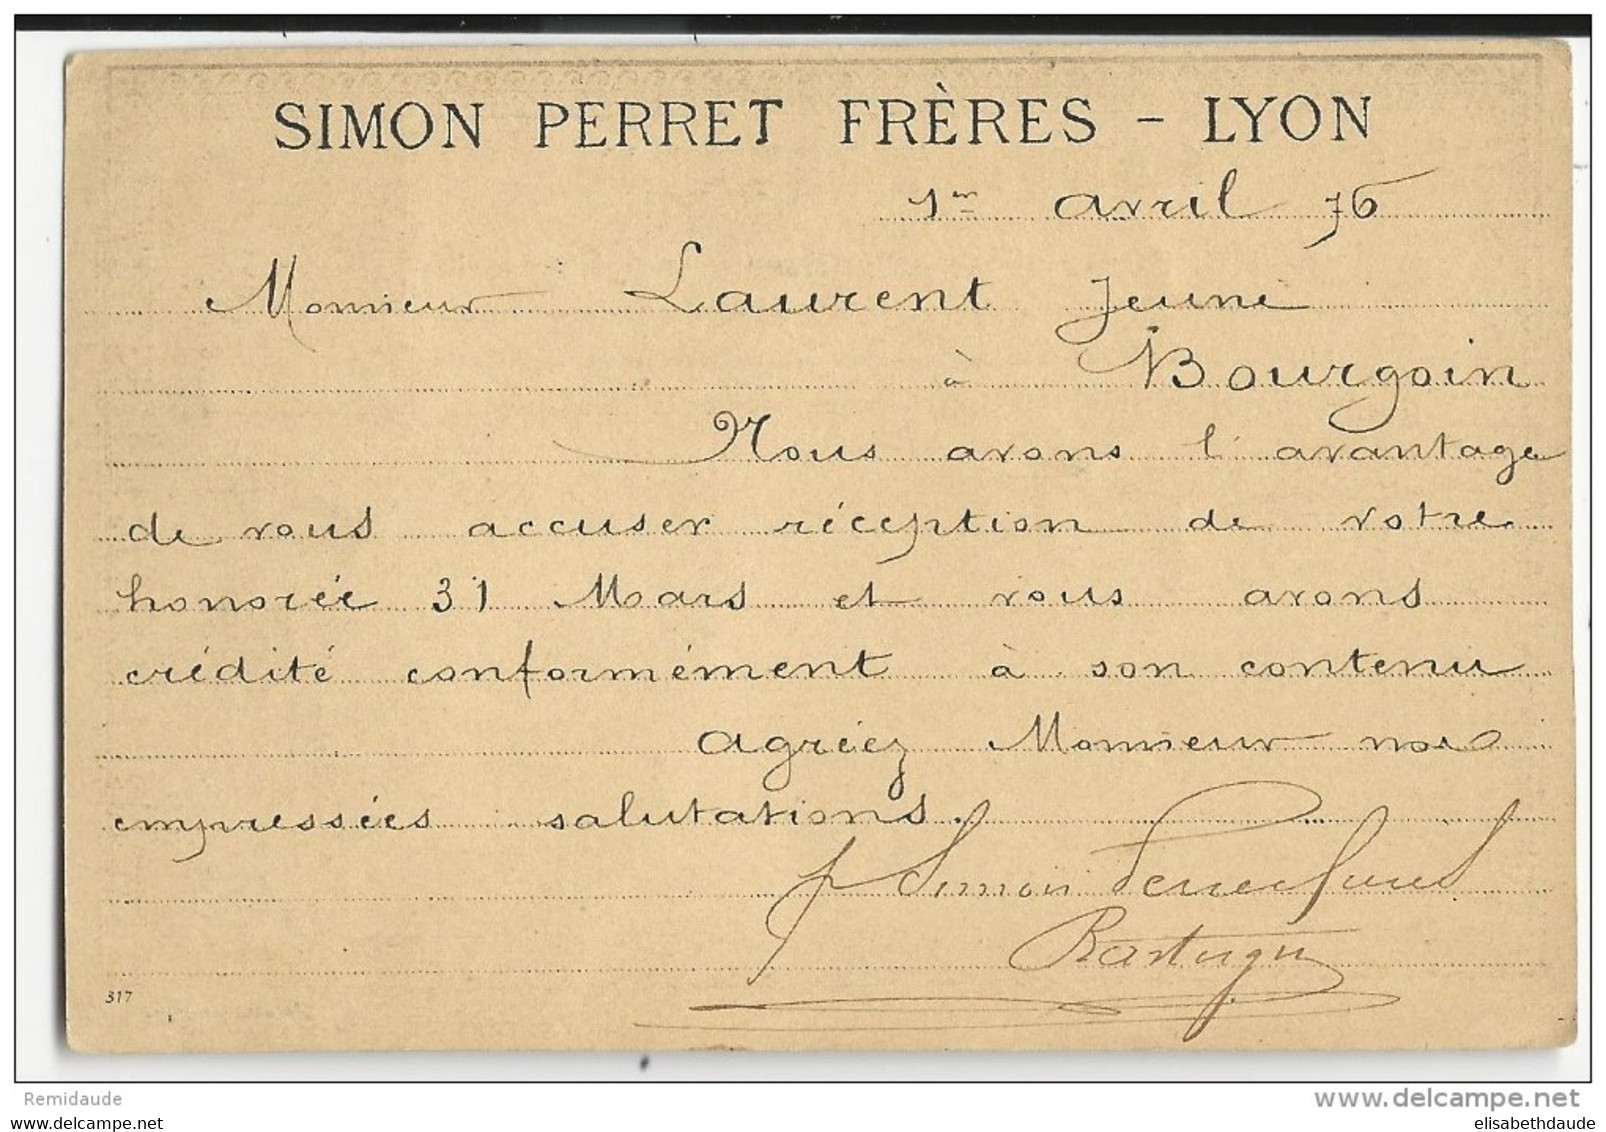 SIMON PERRET FRÈRES - LYON
1er avril 76
Monsieur Laurent Jeune
à Bourgoin
Nous avons l'avantage
de vous accuser réception de votre
honorée 31 Mars et vous avons
crédité conformément à son contenu
agréez Monsieur nos
empressées salutations.
p Simon Perret frères
317
Remidaude
www.delcampe.net
elisabethdaude